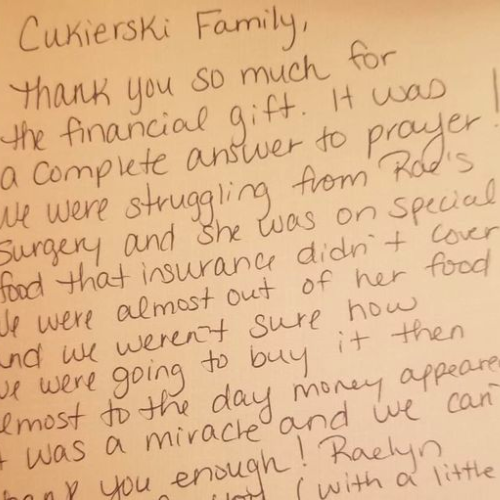 Cukierski Family,
Thank you so much for
the financial gift. It was
a complete answer to prayer!
We were struggling from Rae's
surgery and she was on special
food that insurance didn't cover
We were almost out of her food
and we weren't sure how
we were going to buy it then
almost to the day money appeared
it was a miracle and we can't
thank you enough! Raelyn
(with a little